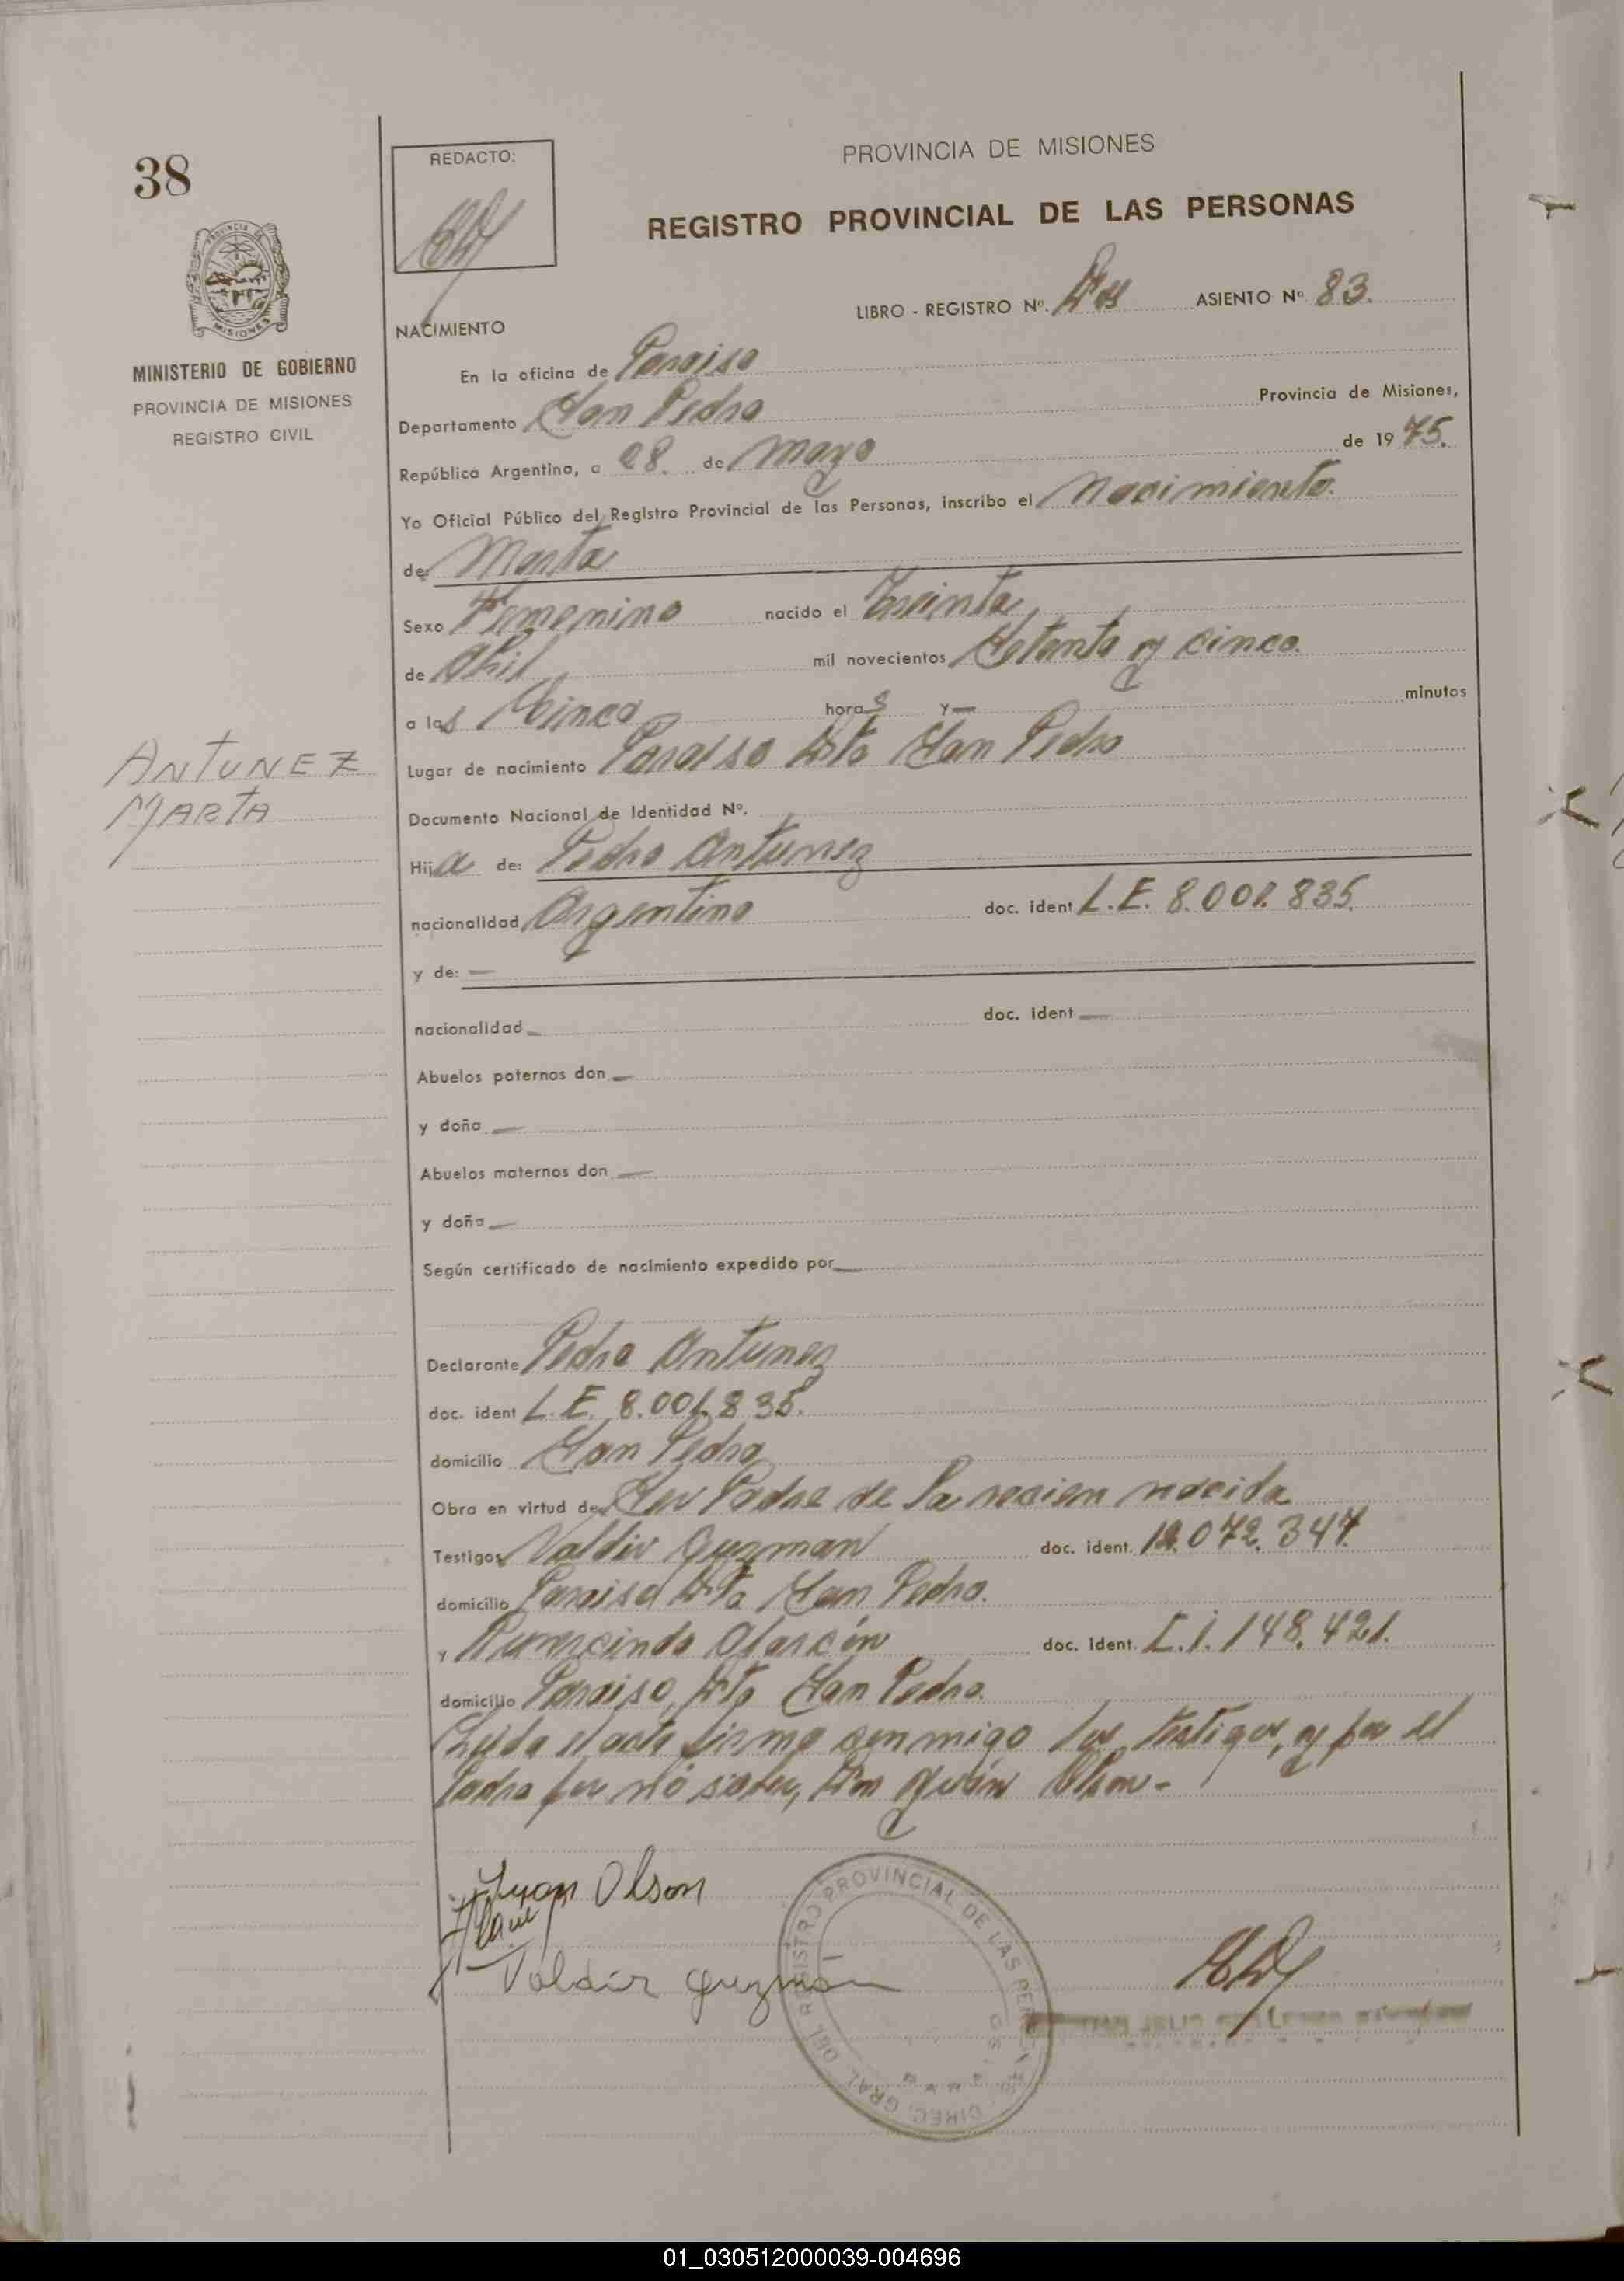 38
PROVINCIA DE MISIONES
MINISTERIO DE GOBIERNO
PROVINCIA DE MISIONES
REGISTRO CIVIL
REDACTO:
PROVINCIA DE MISIONES
REGISTRO PROVINCIAL DE LAS PERSONAS
LIBRO - REGISTRO Nº. ASIENTO Nº 83.
NACIMIENTO
En la oficina de Paraiso
Departamento San Pedro Provincia de Misiones,
República Argentina, a 28. de mayo de 1975.
Yo Oficial Público del Registro Provincial de las Personas, inscribo el Nacimiento.
de: Marta
Sexo Femenino nacido el Treinta
de Abril mil novecientos Setenta y cinco.
a las Cinco horas y — minutos
Lugar de nacimiento Paraiso Dto San Pedro
ANTUNEZ
MARTA
Documento Nacional de Identidad Nº.
Hija de: Pedro Antunez
nacionalidad Argentino doc. ident L.E. 8.001.835.
y de: —
nacionalidad — doc. ident —
Abuelos paternos don —
y doña —
Abuelos maternos don —
y doña —
Según certificado de nacimiento expedido por —
Declarante Pedro Antunez
doc. ident L.E. 8.001.835.
domicilio San Pedro
Obra en virtud de Ser Padre de la recien nacida
Testigos Valdir Guzman doc. ident. 12.072.347.
domicilio Paraiso Dto San Pedro.
y Rumercindo Alarcón doc. ident. C.i. 148.421.
domicilio Paraiso, Dto San Pedro.
Leida el acta firma conmigo los testigos, y por el
Padre por nó saber, Don Juán Olson-
Juan Olson
Valdir Guzman
DIREC. GRAL. DEL REGISTRO PROVINCIAL DE LAS PERSONAS
01_030512000039-004696